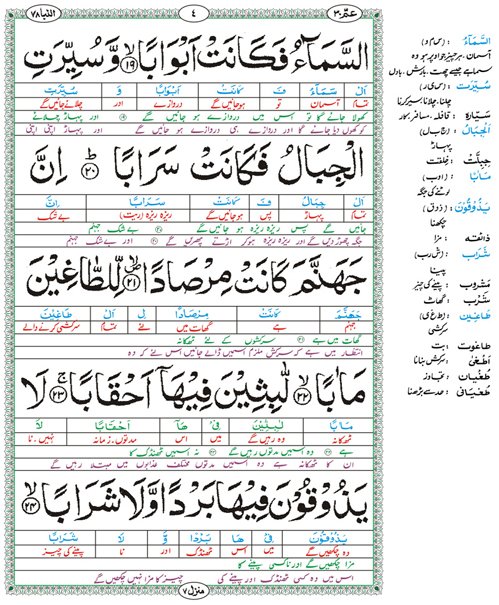 النبا ٧٨
٤
عمّ ٣٠
السَّمَآءُ فَكَانَتْ اَبْوَابًا ۙ۱۹ وَّ سُيِّرَتِ
اَلْ سَمَآءُ فَ كَانَتْ اَبْوَابًا وَ سُيِّرَتِ
تمام آسمان تو ہوجائیں گے دروازے اور چلائے جائیں گے
کھولا جائے گا تو اس میں دروازے ہو جائیں گے ۱۹ اور پہاڑ چلائے
کو کھول دیا جائے گا اور دروازے ہی دروازے ہو جائیں گے اور پہاڑ اپنی اپنی
الْجِبَالُ فَكَانَتْ سَرَابًا ؕ۲۰ اِنَّ
اَلْ جِبَالُ فَ كَانَتْ سَرَابًا اِنَّ
تمام پہاڑ پس ہو جائیں گے ریزہ ریزہ (ریت) بے شک
جائیں گے پس ریزہ ریزہ ہو جائیں گے ۲۰ بے شک جہنم
جگہ چھوڑ دیں گے اور ریزہ ریزہ ہوکر اڑتے پھریں گے اور بے شک جہنم
جَهَنَّمَ كَانَتْ مِرْصَادًا ۙ۲۱ لِّلطَّاغِيْنَ
جَهَنَّمَ كَانَتْ مِرْصَادًا لِ اَلْ طَاغِيْنَ
جہنم ہے گھات میں لئے تمام سرکشی کرنے والے
گھات میں ہے ۲۱ سرکشوں کے لئے ٹھکانہ
انتظار میں ہے کہ سرکش ملزم اسمیں ڈالے جائیں اس لئے کہ وہ
مَاٰبًا ۙ۲۲ لّٰبِثِيْنَ فِيْهَاۤ اَحْقَابًا ۚ۲۳ لَا
مَاٰبًا لٰبِثِيْنَ فِيْ هَا اَحْقَابًا لَا
ٹھکانہ وہ رہیں گے میں اس مدتوں۔زمانہ نہیں۔نا
ہے ۲۲ وہ اسمیں مدتوں رہیں گے ۲۳ نہ اسمیں ٹھنڈک کا
ان کا ٹھکانہ ہے وہ اسمیں مدتوں مختلف عذابوں میں مبتلا رہیں گے
يَذُوْقُوْنَ فِيْهَا بَرْدًا وَّ لَا شَرَابًا ۙ۲۴
يَذُوْقُوْنَ فِيْ هَا بَرْدًا وَ لَا شَرَابًا
وہ چکھیں گے میں اس ٹھنڈک اور نا پینے کی چیز
مزہ چکھیں گے اور نا کسی پینے کا
اس میں وہ کسی ٹھنڈک اور پینے کی چیز کا مزا نہیں چکھیں گے
منزل ۷
السَّمَآءُ : (س م و)
آسمان۔ہر چیز جو اوپر ہو وہ
سماء ہے جیسے چھت۔بارش۔بادل
سُيِّرَتْ : (س ی ر)
چلنا، چلانا، سیر کرنا
سیّارہ : قافلہ۔مسافر۔کار
الْجِبَالُ : (ج ب ل)
پہاڑ
جِبِلَّتْ : خلقت
مَاٰبًا : (ا و ب)
لوٹنے کی جگہ
يَذُوْقُوْنَ : (ذ و ق)
چکھنا
ذائقہ : مزا
شَرَاب : (ش ر ب)
پینا
مشروب : پینے کی چیز
شُرب : گھاٹ
طَاغِيْن : (ط غ ی)
سرکشی
طاغوت : بت
اَطْغٰی : سرکش بنانا
طُغْيَان : تجاوز
طُغْيَانی : حد سے بڑھنا